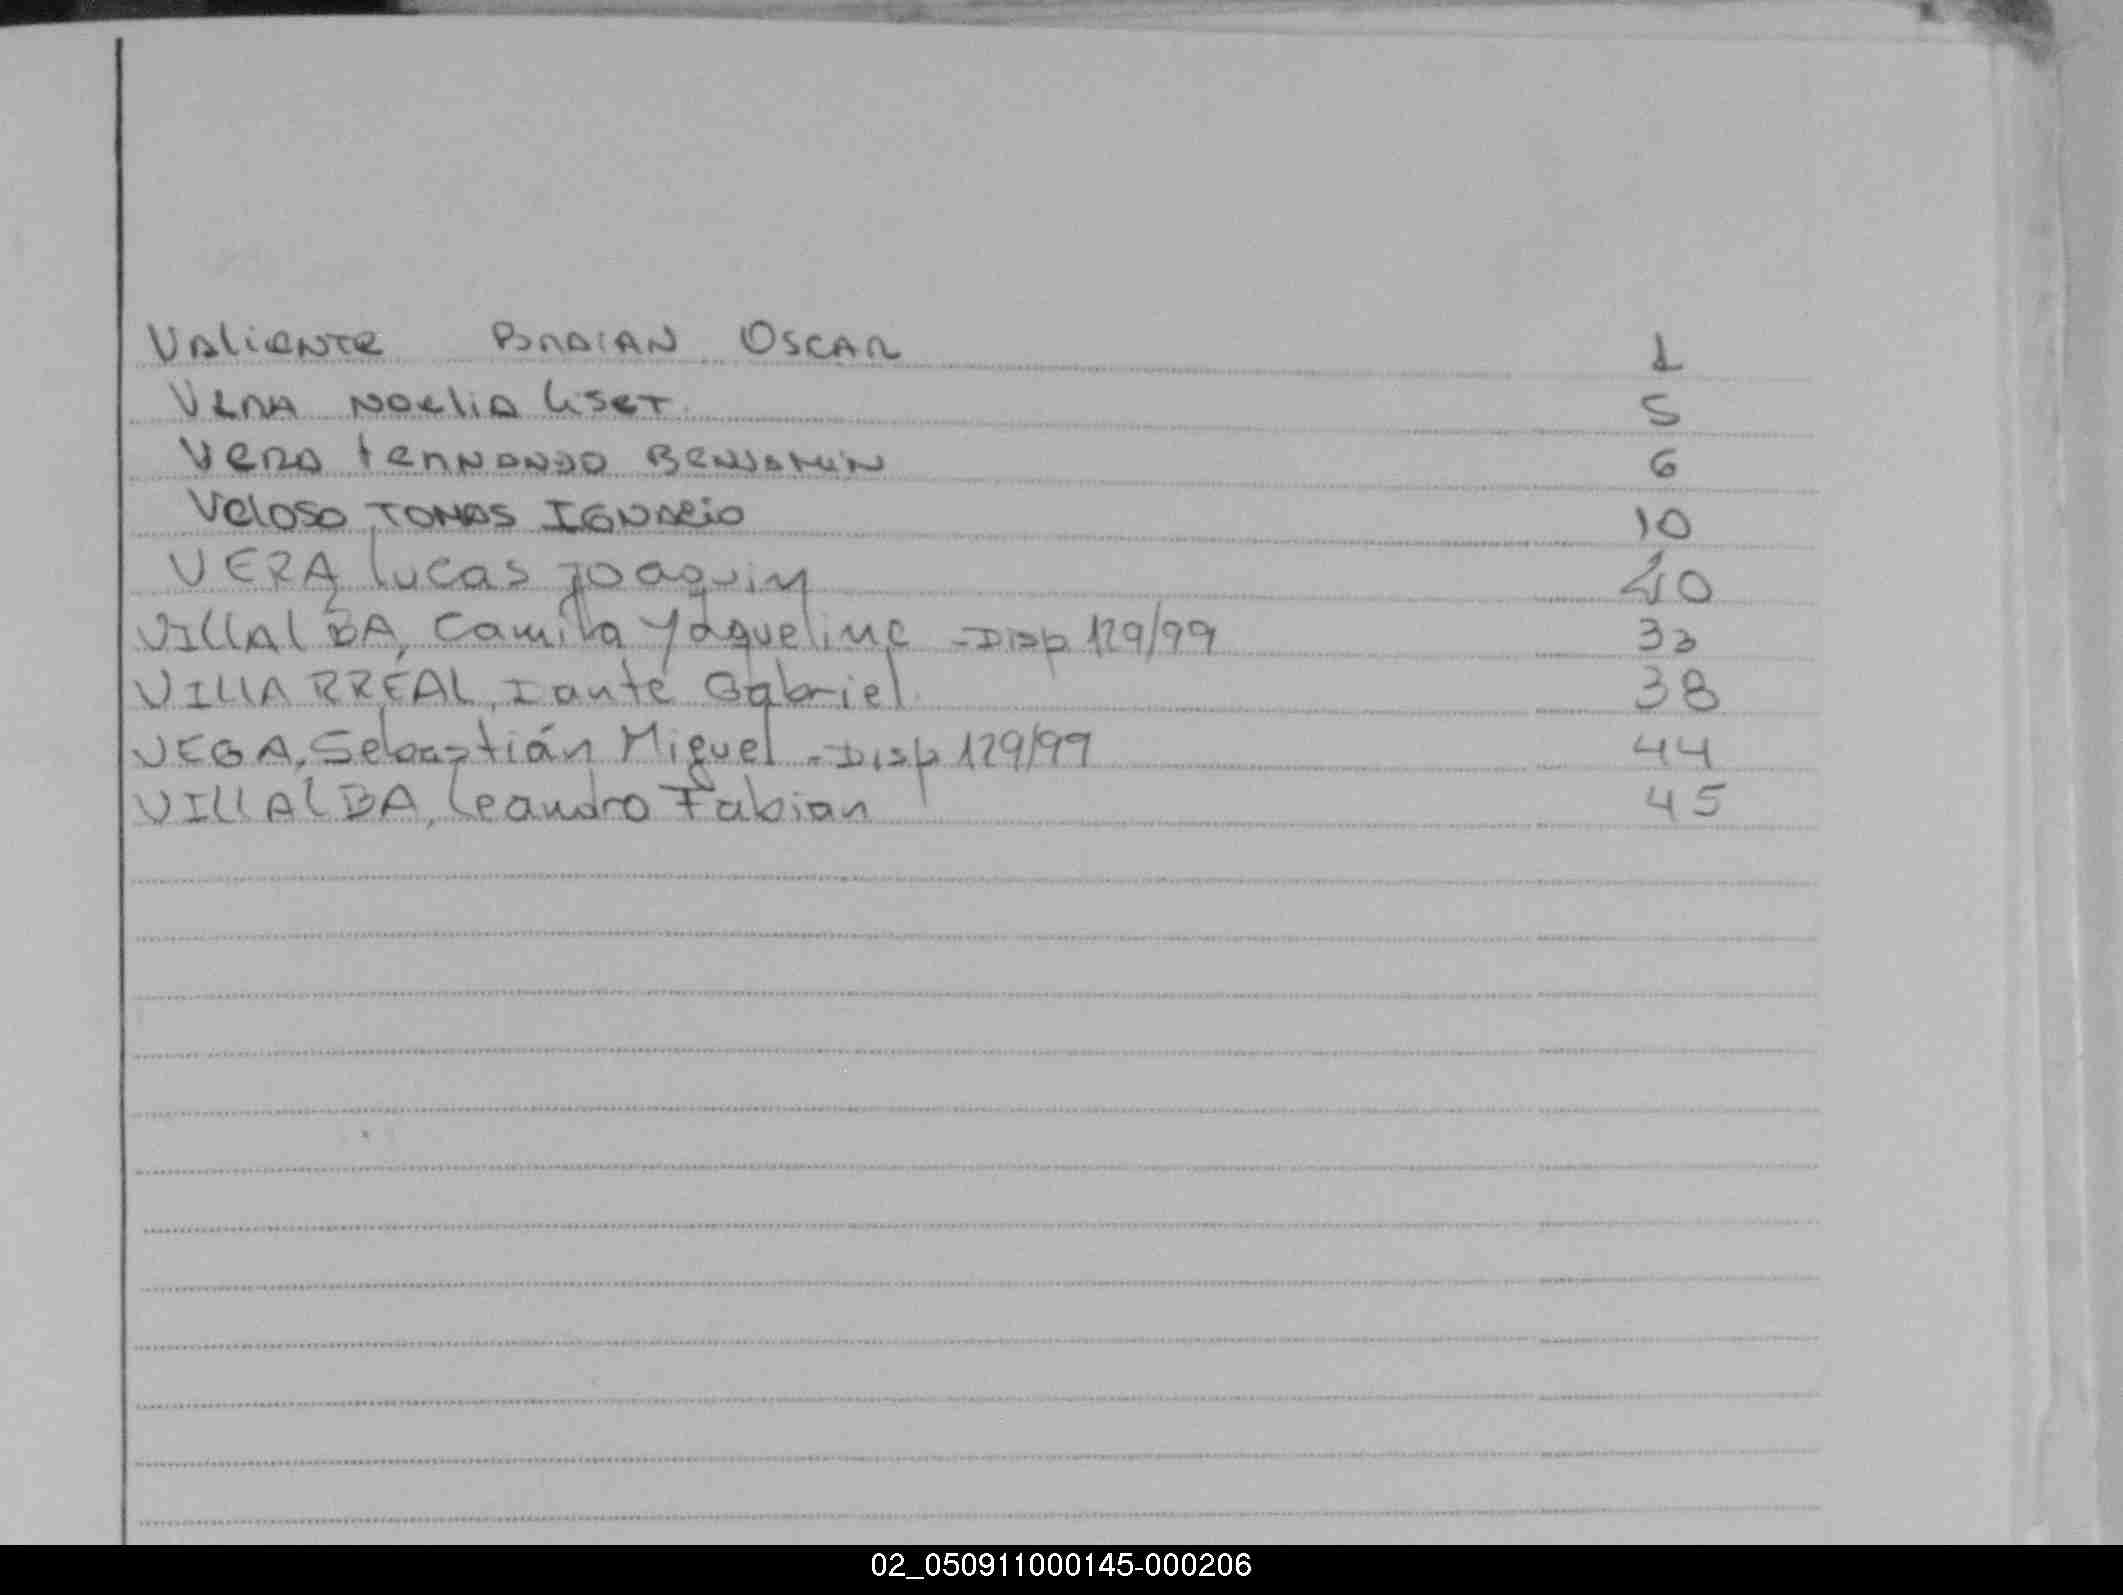 Valiente Braian Oscar 1
Vera Noelia Liset 5
Vera Fernando Benjamin 6
Veloso Tomas Ignacio 10
VERA, Lucas Joaquin 10
VILLALBA, Camila Yaqueline - Disp 129/99 33
VILLARREAL, Dante Gabriel 38
VEGA, Sebastián Miguel - Disp 129/99 44
VILLALBA, Leandro Fabian 45
02_050911000145-000206